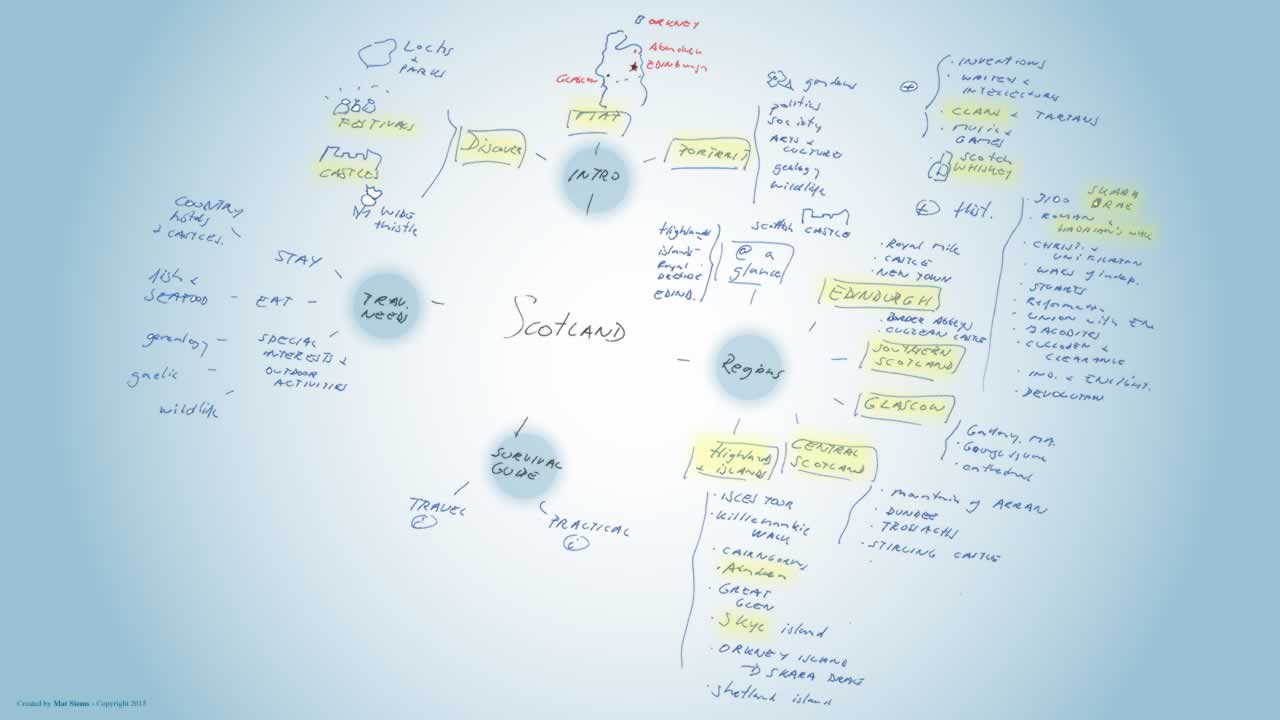 SCOTLAND
INTRO
MAP
ORKNEY
Aberdeen
EDINBURGH
GLASGOW
DISCOVER
LOCHS
&
PARKS
FESTIVALS
CASTLES
WIDE
thistle
PORTRAIT
gardens
politics
society
ARTS &
CULTURES
geology
wildlife
INVENTIONS
WRITERS &
INTELLECTUALS
CLANS & TARTANS
MUSIC &
GAMES
SCOTCH
WHISKEY
Scottish CASTLE
hist.
3100 SKARA
BRAE
ROMAN &
HADRIAN'S WALL
CHRIST. &
UNIFICATION
WARS of indep.
STUARTS
Reformation
UNION with EN
JACOBITES
CULLODEN &
CLEARANCE
IND. & ENLIGHT.
DEVOLUTION
Regions
@ a
glance
Highlands
islands
Royal
DEESIDE
EDINB.
EDINBURGH
Royal Mile
CASTLE
NEW TOWN
SOUTHERN
SCOTLAND
BORDER ABBEYS
CULZEAN CASTLE
GLASGOW
George square
cathedral
CENTRAL
SCOTLAND
mountain of ARRAN
DUNDEE
TROSSACHS
STIRLING CASTLE
Highlands
& ISLANDS
ISLES TOUR
Killiecrankie
WALK
CAIRNGORMS
Aberdeen
GREAT
GLEN
SKYE island
ORKNEY ISLAND
SKARA BRAE
Shetland island
SURVIVAL
GUIDE
TRAVEL
i
PRACTICAL
i
TRAV.
NEEDS
STAY
COUNTRY
hotels
& CASTLES.
EAT
fish &
SEAFOOD
SPECIAL
INTERESTS &
OUTDOOR
ACTIVITIES
genealogy
gaelic
wildlife
Created by Mat Siems - Copyright 2015